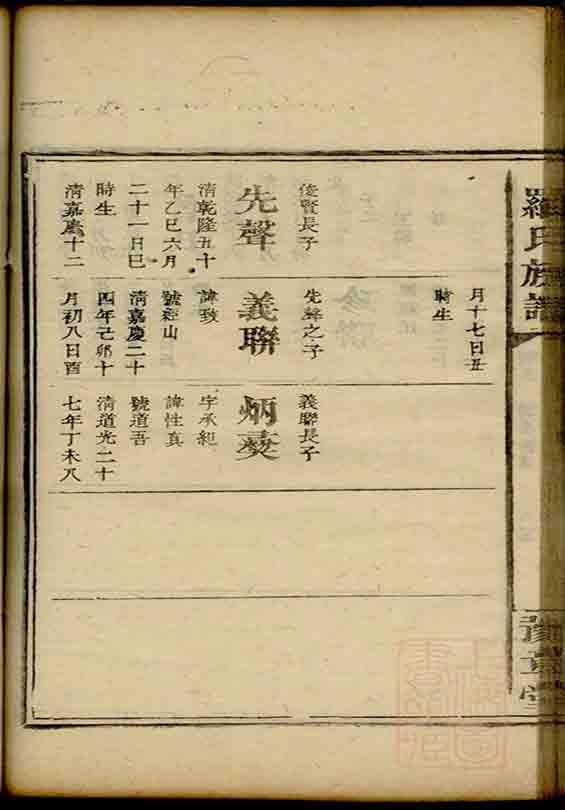 羅氏族譜
豫章堂
俊賢長子
先聲
清乾隆五十
年乙巳六月
二十一日巳
時生
清嘉慶十二
月十七日丑
時生
先聲之子
義聯
諱致
號經山
清嘉慶二十
四年己卯十
月初八日酉
義聯長子
炳
字承紀
諱性真
號道吾
清道光二十
七年丁未八
上海圖
書館藏